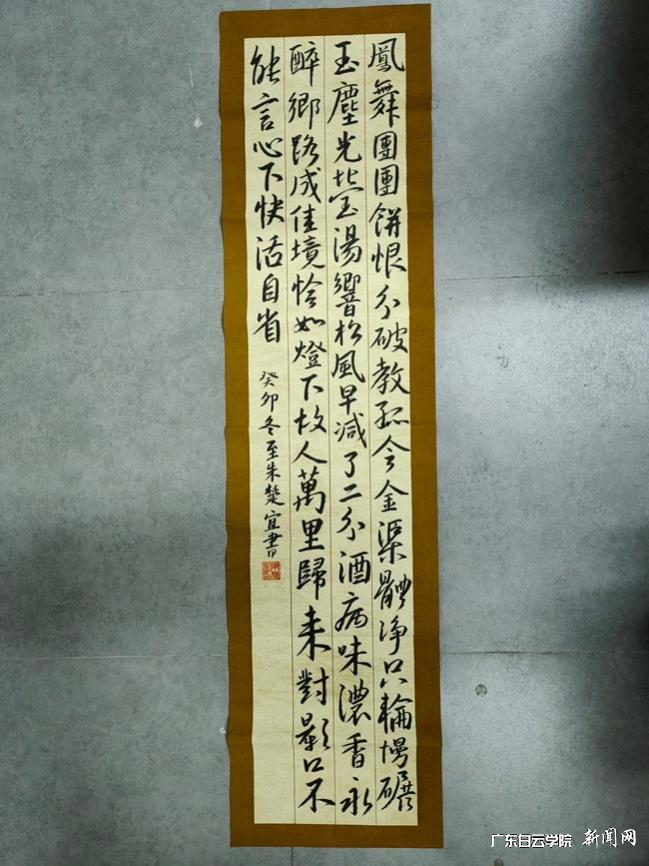 鳳舞團團餅恨分破教孤令金渠體净只輪慢碾
玉塵光瑩湯響松風早減了二分酒病味濃香永
醉鄉路成佳境恰如燈下故人萬里歸来對影口不
能言心下快活自省
癸卯冬至朱楚宜書
广东白云学院 新闻网